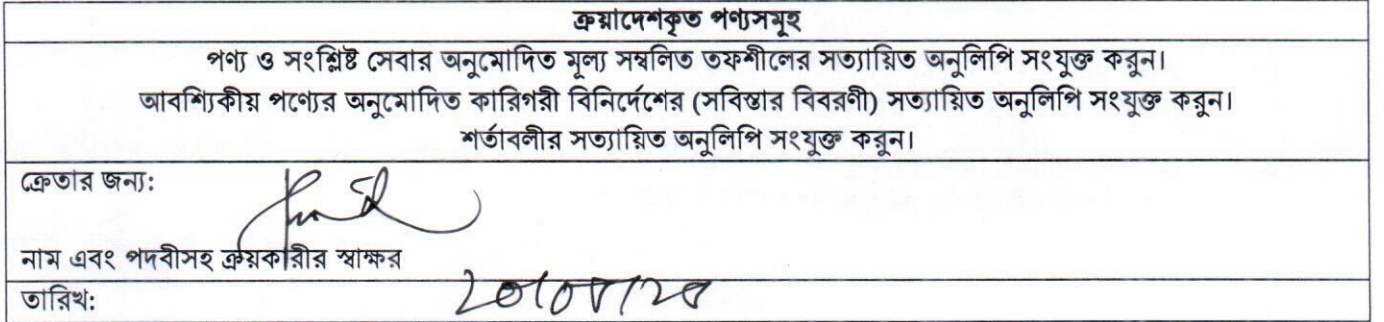 ক্রয়াদেশকৃত পণ্যসমূহ
পণ্য ও সংশ্লিষ্ট সেবার অনুমোদিত মূল্য সম্বলিত তফশীলের সত্যায়িত অনুলিপি সংযুক্ত করুন।
আবশ্যিকীয় পণ্যের অনুমোদিত কারিগরী বিনির্দেশের (সবিস্তার বিবরণী) সত্যায়িত অনুলিপি সংযুক্ত করুন।
শর্তাবলীর সত্যায়িত অনুলিপি সংযুক্ত করুন।
ক্রেতার জন্য:
নাম এবং পদবীসহ ক্রয়কারীর স্বাক্ষর
তারিখ: